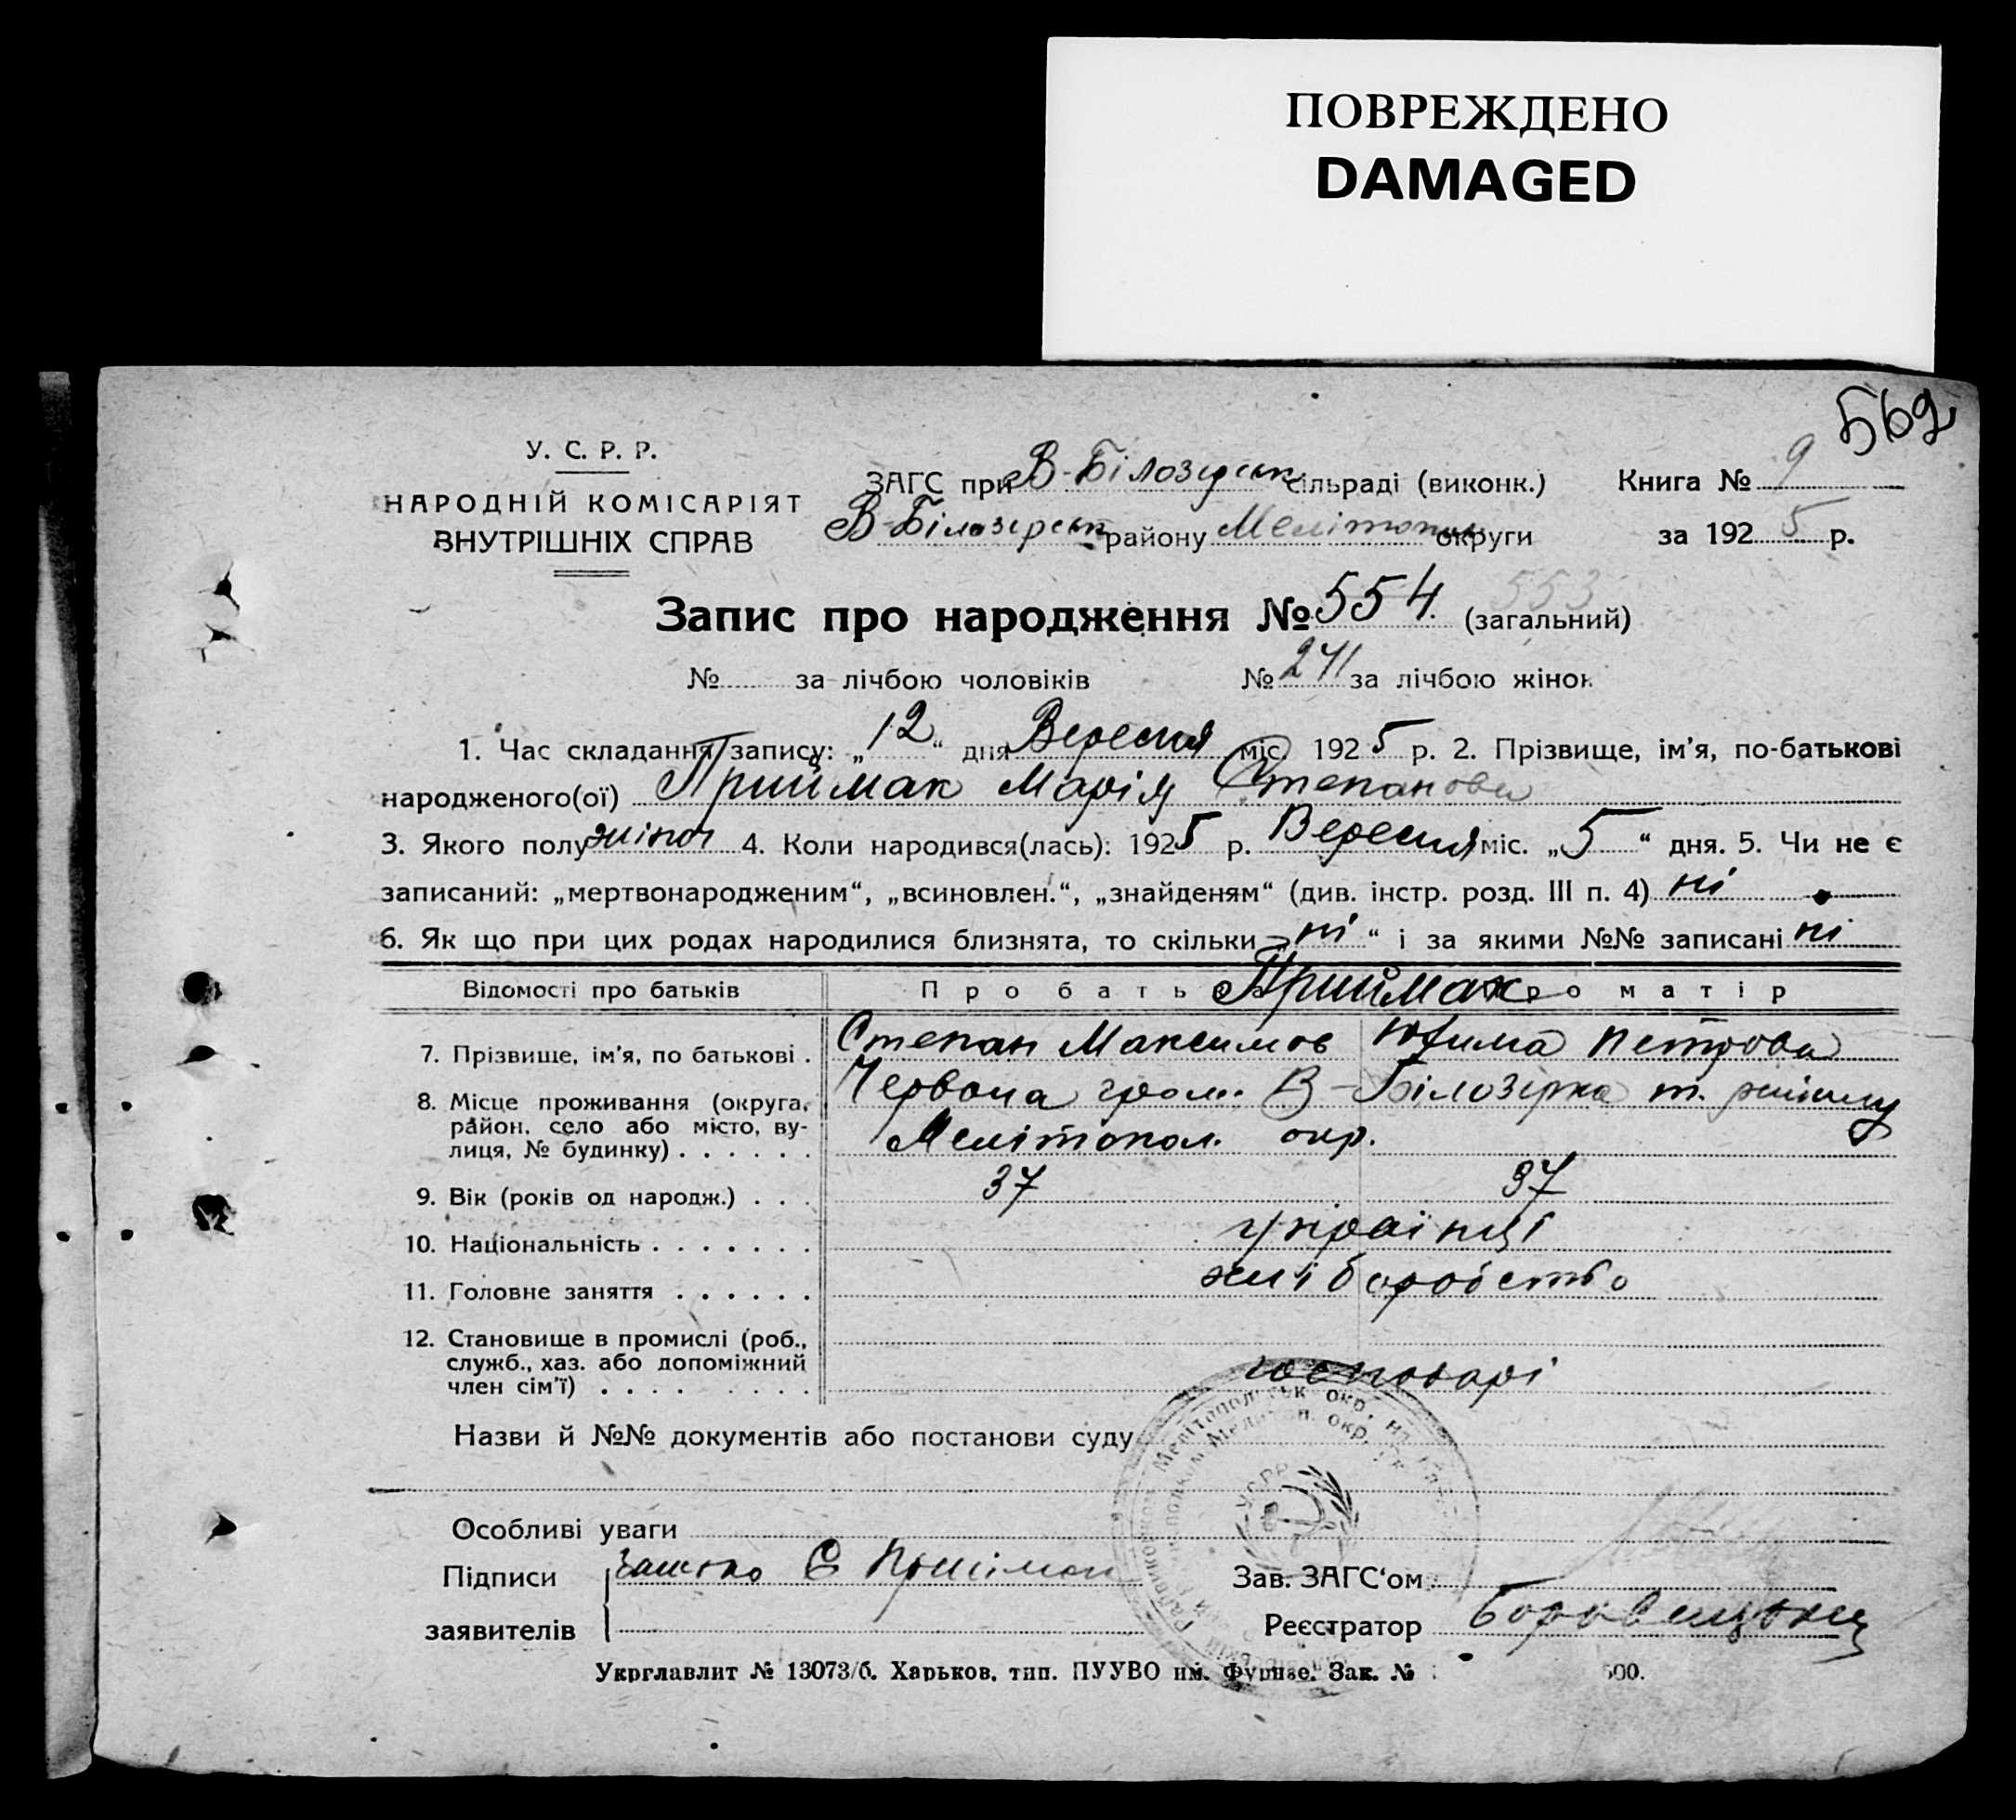 ПОВРЕЖДЕНО
DAMAGED
569
У. С. Р. Р.
НАРОДНІЙ КОМІСАРІЯТ
ВНУТРІШНІХ СПРАВ
ЗАГС при В-Білозерськ сільраді (виконк.) Книга № 9
В-Білозерськ району Мелітопол округи за 1925 р.
553
Запис про народження № 554 (загальний)
№ за лічбою чоловіків № 241 за лічбою жінок
1. Час складання запису: „12“ дня Вересня міс. 1925 р. 2. Прізвище, ім’я, по-батькові
народженого(ої) Приймак Марія Степанова
3. Якого полу жіноч 4. Коли народився(лась): 1925 р. Вересня міс. „5“ дня. 5. Чи не є
записаний: „мертвонародженим“, „всиновлен.“, „знайденям“ (див. інстр. розд. III п. 4) ні
6. Як що при цих родах народилися близнята, то скільки „ні“ і за якими №№ записані ні
Відомості про батьків Про бать Приймак о матір
7. Прізвище, ім’я, по батькові . Степан Максимов Юхима Петрова
8. Місце проживання (округа, Червона гром. В-Білозірка т. району
район, село або місто, ву-
лиця, № будинку) . . . . . . Мелітопол. окр.
9. Вік (років од народж.) . . . 37 37
10. Національність . . . . . . . українці
11. Головне заняття . . . . . . хліборобство
12. Становище в промислі (роб.,
служб., хаз. або допоміжний
член сім’ї) . . . . . . . . . господарі
Назви й №№ документів або постанови суду
УСРР
Особливі уваги
Підписи Є Приімак Зав. ЗАГС‘ом
заявителів Реєстратор
Укрглавлит № 13073/б. Харьков, тип. ПУУВО им. Фрунзе. Зак. № 500.